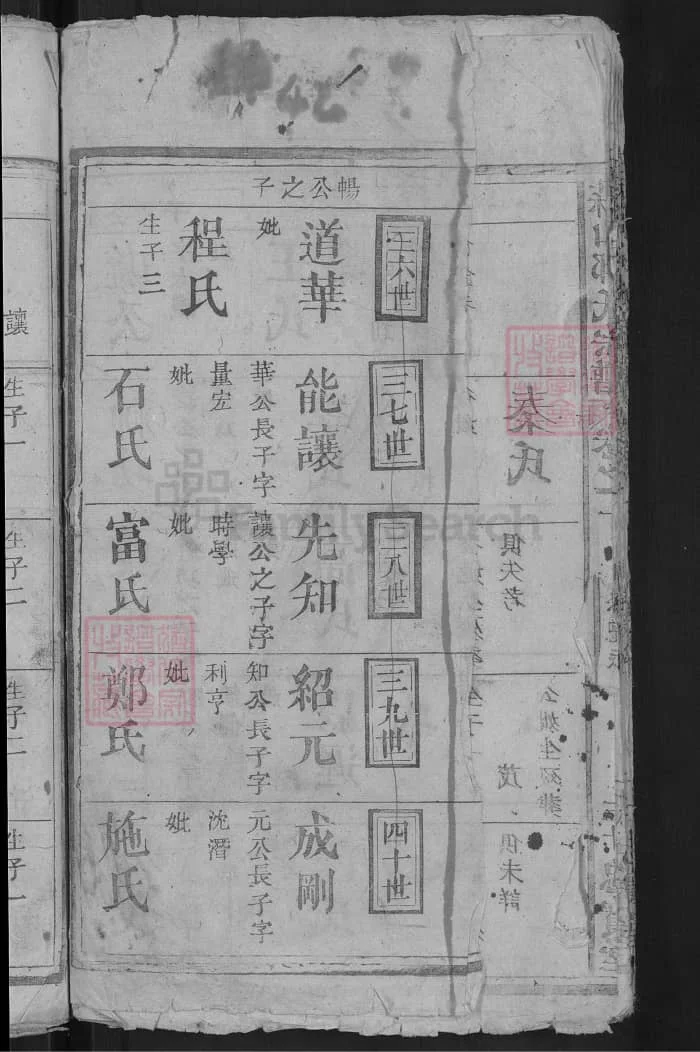 暢公之子
三六世
道華
妣
程氏
生子三
三七世
能讓
華公長子字
量宏
妣
石氏
三八世
先知
讓公之子字
時學
妣
富氏
三九世
紹元
知公長子字
利亨
妣
鄭氏
四十世
成剛
元公長子字
沈潛
妣
施氏
秦氏
俱失考
茂
俱未詳
讓
生子一
生子二
生子二
生子一
FamilySearch